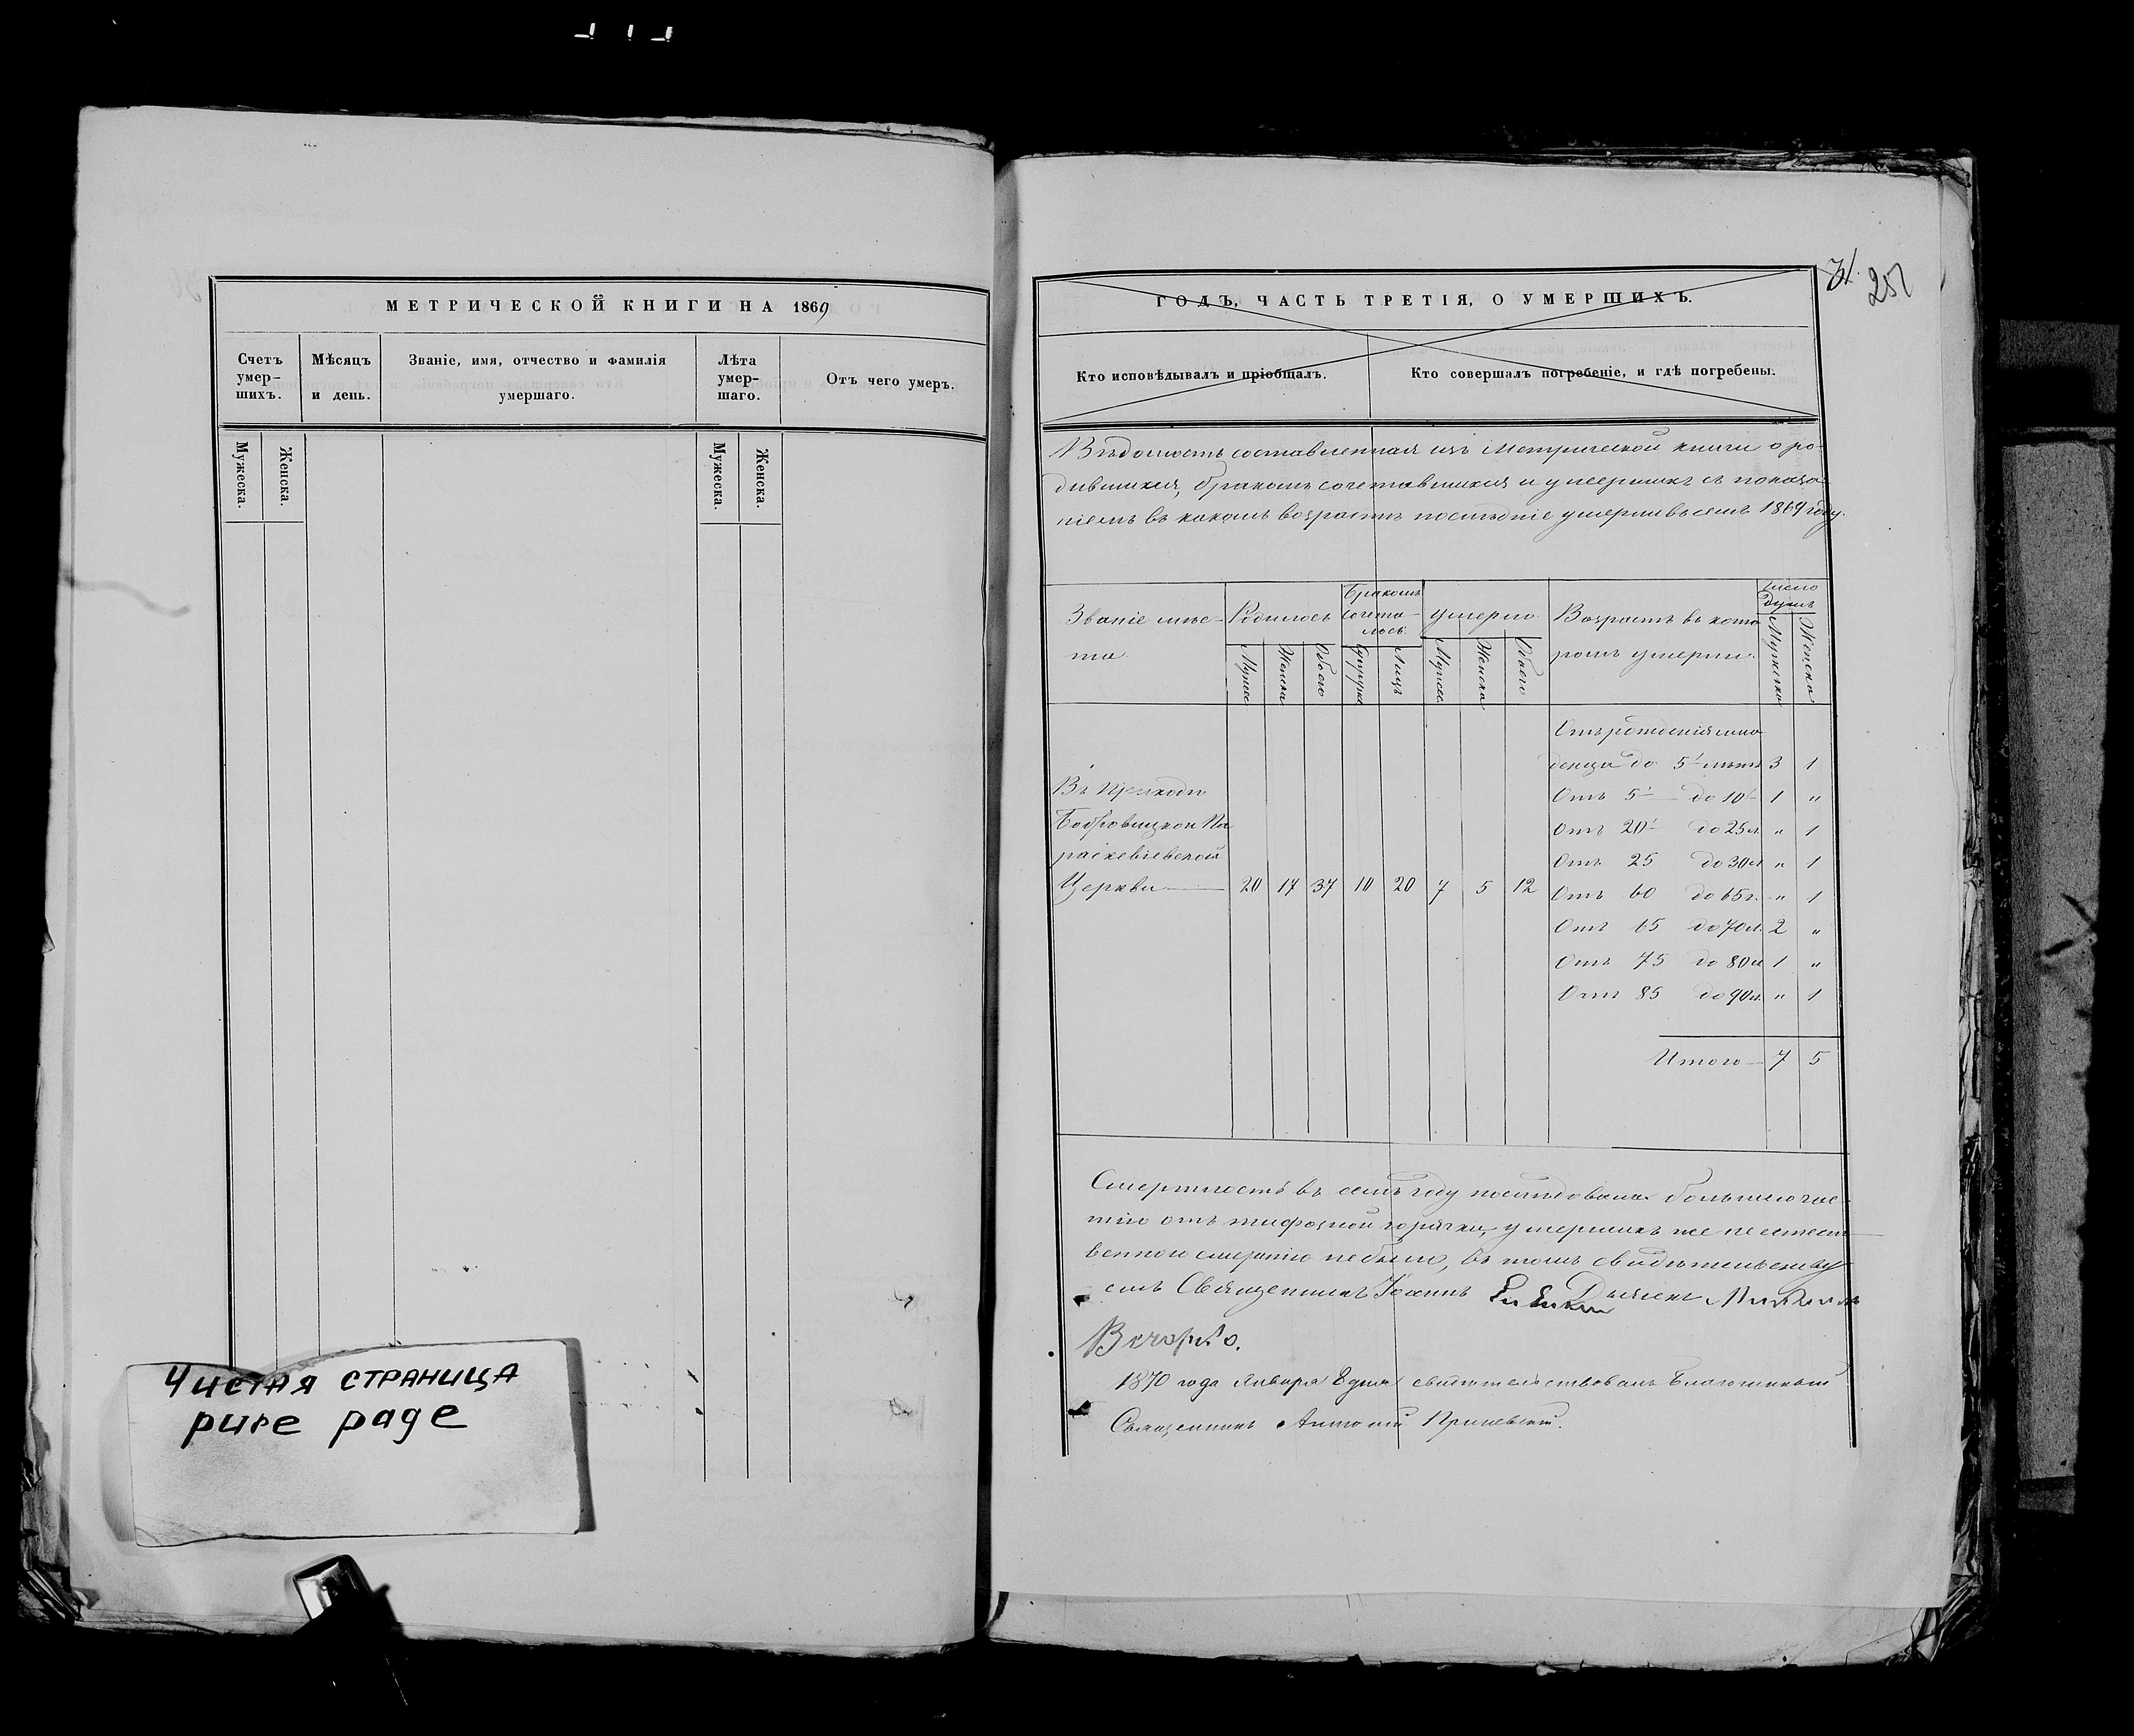 МЕТРИЧЕСКОЙ КНИГИ НА 1869
Счетъ умер-шихъ.
Мѣсяцъ и день.
Званіе, имя, отчество и фамилія умершаго.
Лѣта умер-шаго.
Отъ чего умеръ.
Мужеска.
Женска.
Мужеска.
Женска.
Чистая страница
pure page
31.
251
ГОДЪ, ЧАСТЬ ТРЕТІЯ, О УМЕРШИХЪ.
Кто исповѣдывалъ и пріобщалъ.
Кто совершалъ погребеніе, и гдѣ погребены.
Вѣдомость составленная изъ Метрической книги о ро-
дившихся, бракомъ сочетавшихся и умершихъ съ показа
ніемъ въ какомъ возрастѣ послѣдніе умерли въ семъ 1869 году.
Званіе мѣс-та.
Родилось
Бракомъ сочета-лось.
Умерло
Возрастъ въ кото
ромъ умерли.
Число душъ
Мужес
Женска
Обоего
Супруж
Лицъ
Мужес
Женска
Обоего
Мужеска
Женска
Отъ рожденія мла
денца до 5 лѣтъ 3 1
Отъ 5 до 10 1 "
Отъ 20 до 25 л. " 1
Отъ 25 до 30 л " 1
Въ Приходѣ
Бобровицкой Па
раскевіевской
Церкви — 20 17 37 10 20 7 5 12
Отъ 60 до 65 г. " 1
Отъ 65 до 70 л. 2 "
Отъ 75 до 80 л 1 "
Отъ 85 до 90 л. " 1
Итого — 7 5
Смертность въ семъ году послѣдовала большею час-
тію отъ тифозной горячки, умершихъ же неестест
венною смертію не было, въ томъ свидѣтельству
емъ Священникъ Іоаннъ Дьячекъ
1870 года Января 8 дня свидѣтельствовалъ Благочинный
Священникъ Антоній